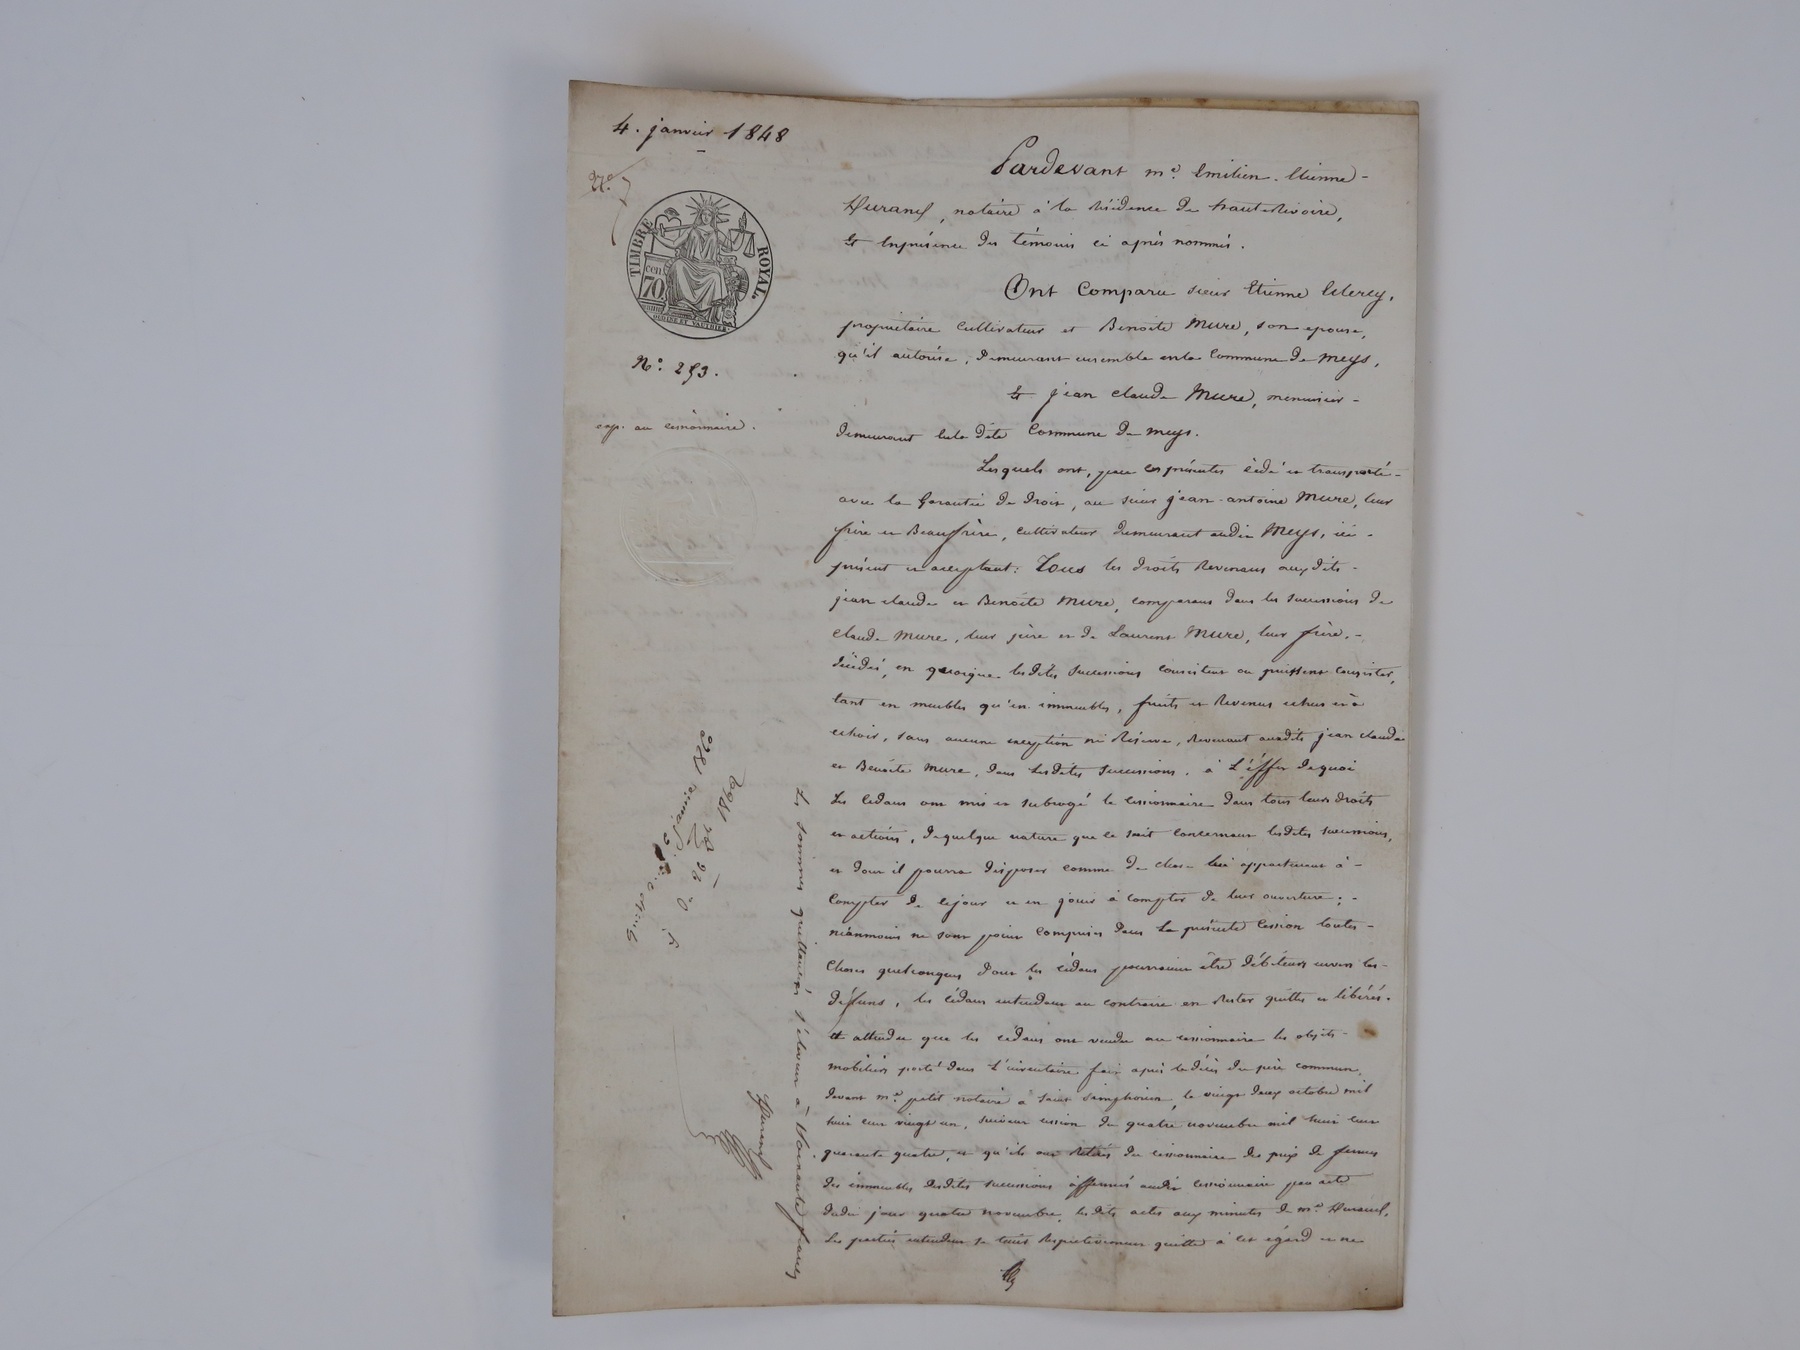 4. janvier 1848
TIMBRE ROYAL.
cen
70
N.º 253.
exp. au cessionnaire.
Pardevant m.e Emilien. Etienne-
Durand, notaire à la Résidence de hauterivoire,
Et Enprésence des témoins ci après nommés.
Ont Comparu sieur Etienne
propriétaire Cultivateur et Benoite Mure, son epouse,
qu'il autorise, demeurant ensemble enla Commune de Meys,
Et jean Claude Mure, menuisier-
demeurant enla dite Commune de meys.
Lesquels ont, par ces présentes cédé et transporté-
avec la Garantie de droit, au sieur jean-antoine Mure, leur
frère et Beaufrère, cultivateur demeurant audit Meys, ici-
présent et acceptant: Tous les droits Revenans auxdits-
jean claude et Benoite Mure, comparans dans les successions de
Claude Mure, leur père et de Laurent Mure, leur frère,-
décédés, en quoique lesdites successions consistent ou puissent consister,
tant en meubles qu'en immeubles, fruits et Revenus echus et à
echoir, sans aucune exception ni Réserve, Revenant auxdits jean claude
et Benoite Mure, dans lesdites successions. à L'éffet dequoi
Les Cédans ont mis et subrogé le cessionnaire dans tous leurs droits
et actions, dequelque nature que ce soit concernant lesdites successions,
et dont il pourra disposer comme de chose lui appartenant à-
Compter de cejour et en jouir à compter de leur ouverture;-
néanmoins ne sont point Comprises dans La présente Cession toutes-
Choses quelconques dont les Cédans pourraient être débiteurs envers les-
défuns, les Cédans entendant au contraire en Rester quittes et libérés.
et attendu que les cédans ont vendu au cessionnaire les objets-
mobiliers porté dans L'inventaire fait après ledécès du père commun,
devant m.e petit notaire à Saint Simphorien, le vingt deux octobre mil
huit cent vingt un, suivant cession du quatre novembre mil huit cent
quarante quatre, et qu'ils ont Retirés du cessionnaire les prix de fermes
des immeubles desdites successions áffermés audit cessionnaire par acte
dudit jour quatre novembre, lesdits actes aux minutes de m.e Durand,
Les parties entendent se tenir Respectivement quittes à cet égard et ne
Les sommes quittancées s'élèvent à francs
Durand
janvier 1860
26 1862